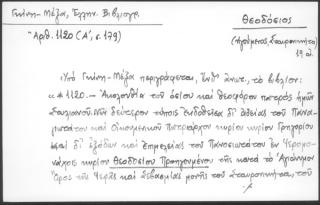 Γκίνη-Μέξα, Ἑλλην. Βιβλιογρ.
Ἀρθ. 1120 (Α', σ. 179)
ΘΕΟΔΟΣΙΟΣ
(Ἡγούμενος, Σταυρονικήτα)
19 αἰ.
Ὑπὸ Γκίνη-Μέξα περιγράφεται, ἔνθ' ἄνωτ., τὸ βιβλίον:
« α 1120.- Ἀκολουθία τοῦ ὁσίου καὶ θεοφόρου πατρὸς ἡμῶν
δεύτερον τύποις ἐκδοθεῖσα δι' ἀδείας τοῦ Πανα-
γιωτάτου καὶ Οἰκουμενικοῦ Πατριάρχου κυρίου κυρίου Γρηγορίου
καὶ δι' ἐξόδων καὶ ἐπιμελείας τοῦ Πανοσιωτάτου ἐν Ἱερομο-
νάχοις κυρίου Θεοδοσίου Προηγουμένου τῆς κατὰ τὸ Ἁγιώνυμον
Ὄρος τῆς Ἱερᾶς καὶ Σεβασμίας μονῆς τοῦ Σταυρονικήτα, τοῦ